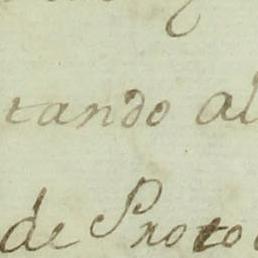 tando al
de Proto